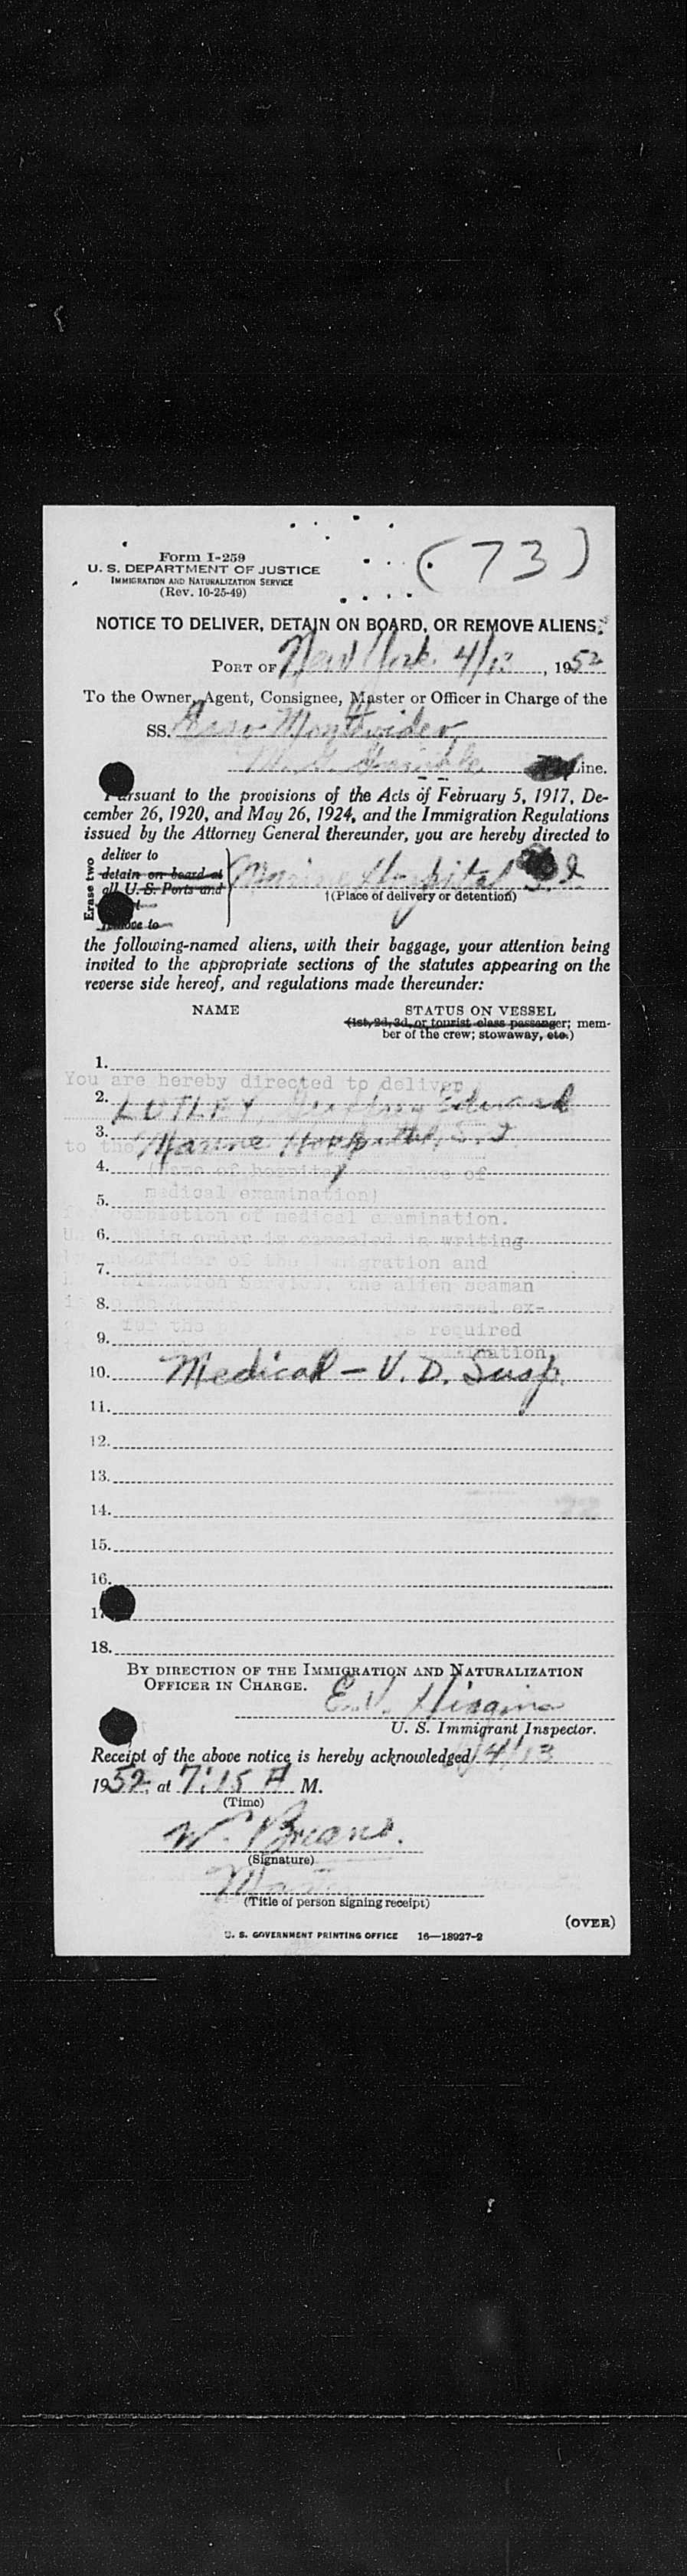 (73)
Form I-259
U. S. DEPARTMENT OF JUSTICE
IMMIGRATION AND NATURALIZATION SERVICE
(Rev. 10-25-49)
NOTICE TO DELIVER, DETAIN ON BOARD, OR REMOVE ALIENS
PORT OF New York 4/13, 1952
To the Owner, Agent, Consignee, Master or Officer in Charge of the
SS. Montevideo
Line.
Pursuant to the provisions of the Acts of February 5, 1917, De-
cember 26, 1920, and May 26, 1924, and the Immigration Regulations
issued by the Attorney General thereunder, you are hereby directed to
Erase two
deliver to
detain on board at
all U. S. Ports and
remove to
Marine Hospital S.I.
†(Place of delivery or detention)
the following-named aliens, with their baggage, your attention being
invited to the appropriate sections of the statutes appearing on the
reverse side hereof, and regulations made thereunder:
NAME STATUS ON VESSEL
(1st, 2d, 3d, or tourist class passenger; mem-
ber of the crew; stowaway, etc.)
1.
You are hereby directed to deliver
2. LUTLEY, Edward
3. Marine Hospital, S.I.
to the
4.
medical examination)
5.
of medical examination.
6. order is canceled in writing
officer of the Immigration and
7.
Service, the alien seaman
8.
for the required
9.
10. Medical - V. D. Susp.
11.
12.
13.
14.
15.
16.
17.
18.
BY DIRECTION OF THE IMMIGRATION AND NATURALIZATION
OFFICER IN CHARGE.
E.V. Higgins
U. S. Immigrant Inspector.
Receipt of the above notice is hereby acknowledged 4/13
1952, at 7:15 A M.
(Time)
W.
(Signature)
(Title of person signing receipt)
(OVER)
U. S. GOVERNMENT PRINTING OFFICE 16—18927-2